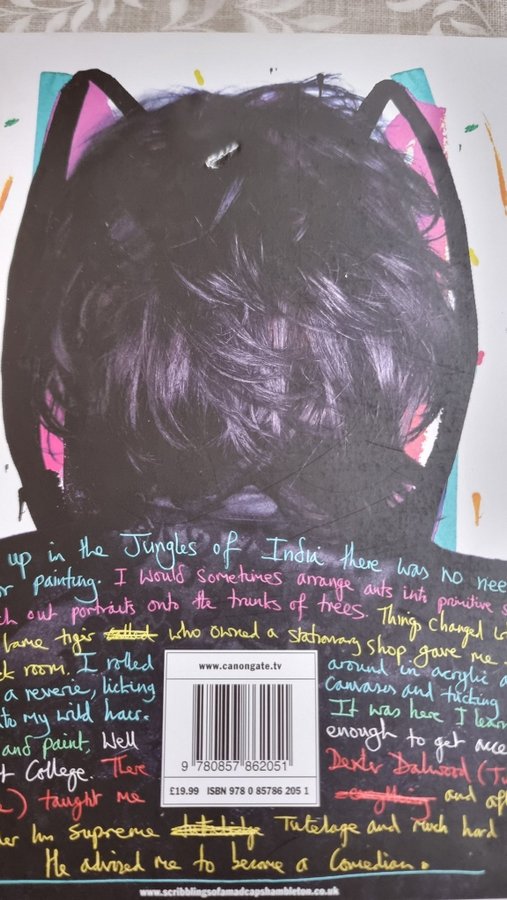 up in the Jungles of India there was no nee
or painting. I would sometimes arrange ants into primitive s
ch out portraits onto the trunks of trees. Things changed
lame tiger called who owned a stationary shop gave me
ck room. I rolled around in acrylic a
a reverie, licking canvases and tucking
nto my wild hair. It was here I learn
and paint, Well enough to get acce
t College. There Dexter Dalwood (Tu
e) taught me everything and aft
der his supreme Tutelage and much hard
He advised me to become a Comedian.
www.canongate.tv
9 780857 862051
£19.99 ISBN 978 0 85786 205 1
www.scribblingsofamadcapshambleton.co.uk